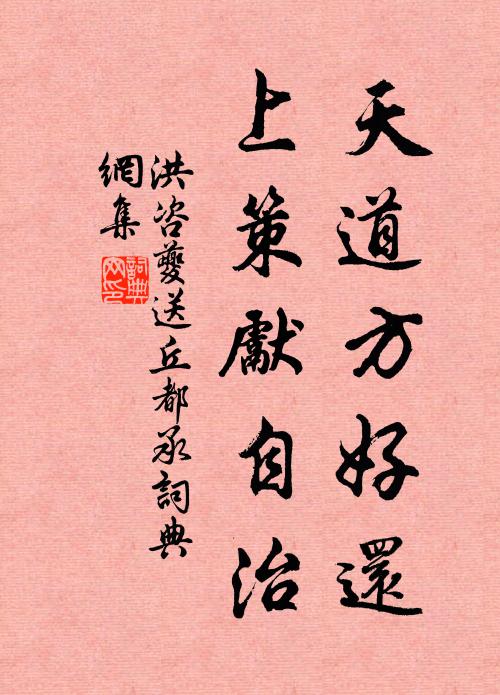 天道方好還
上策獻自治
洪咨夔送丘都承詞典
網集
詞典網印